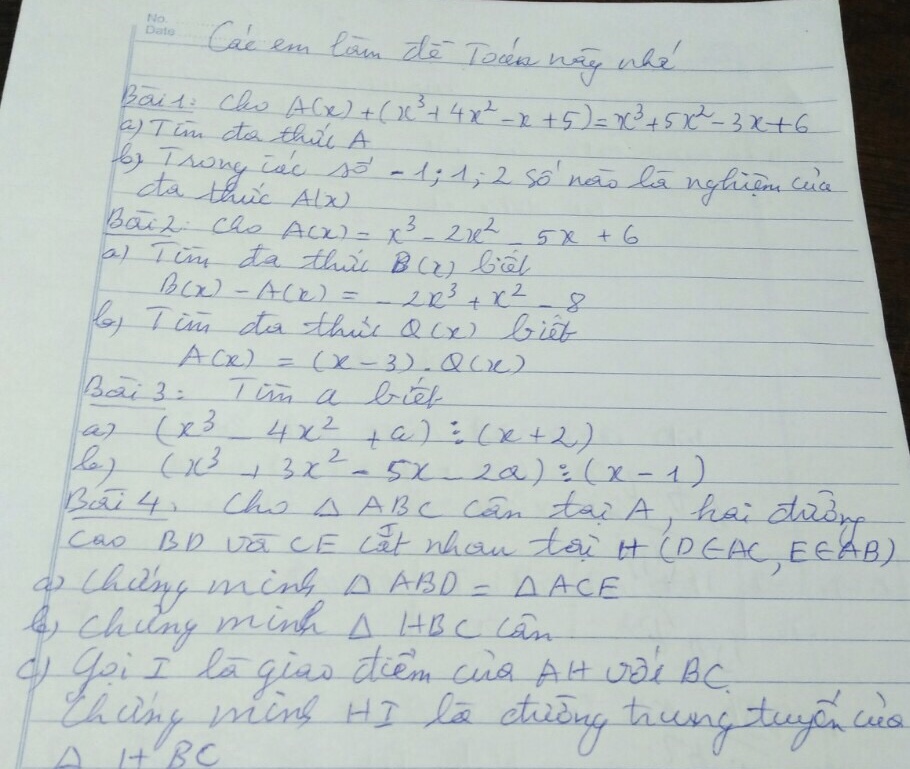 No.
Date
Các em làm đề Toán này nhé
Bài 1: Cho A(x) + (x³ + 4x² - x + 5) = x³ + 5x² - 3x + 6
a) Tìm đa thức A
b) Trong các số -1; 1; 2 số nào là nghiệm của
đa thức A(x)
Bài 2: Cho A(x) = x³ - 2x² - 5x + 6
a) Tìm đa thức B(x) biết
B(x) - A(x) = - 2x³ + x² - 8
b) Tìm đa thức Q(x) biết
A(x) = (x - 3) . Q(x)
Bài 3: Tìm a biết
a) (x³ - 4x² + a) ⋮ (x + 2)
b) (x³ + 3x² - 5x - 2a) ⋮ (x - 1)
Bài 4. Cho △ ABC cân tại A, hai đường
cao BD và CE cắt nhau tại H (D ∈ AC, E ∈ AB)
a) Chứng minh △ ABD = △ ACE
b) Chứng minh △ HBC cân
c) Gọi I là giao điểm của AH với BC.
Chứng minh HI là đường trung tuyến của
△ HBC